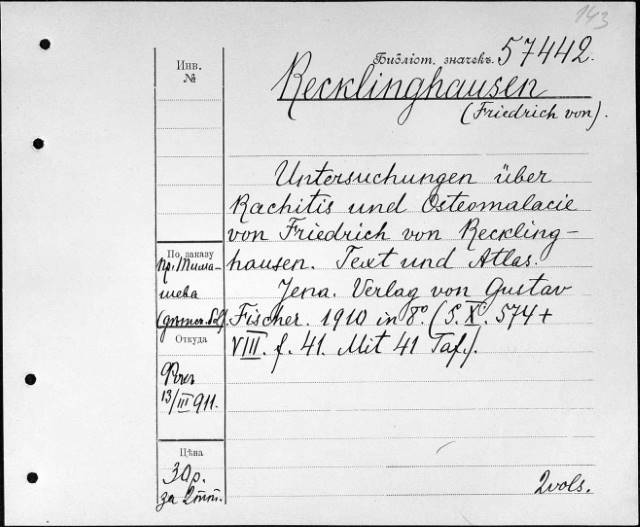 143
Библіот. значекъ. 57442.
Инв.
№
Recklinghausen
(Friedrich von).
Untersuchungen über
Rachitis und Osteomalacie
von Friedrich von Reckling-
hausen. Text und Atlas.
Jena. Verlag von Gustav
Fischer. 1910 in 8° (S. X. 574 +
VIII. f. 41. Mit 41 Taf.).
По заказу
пр. Тима-
шева
Откуда
13/III 911.
Цѣна
30р.
за 2тт.
2vols.